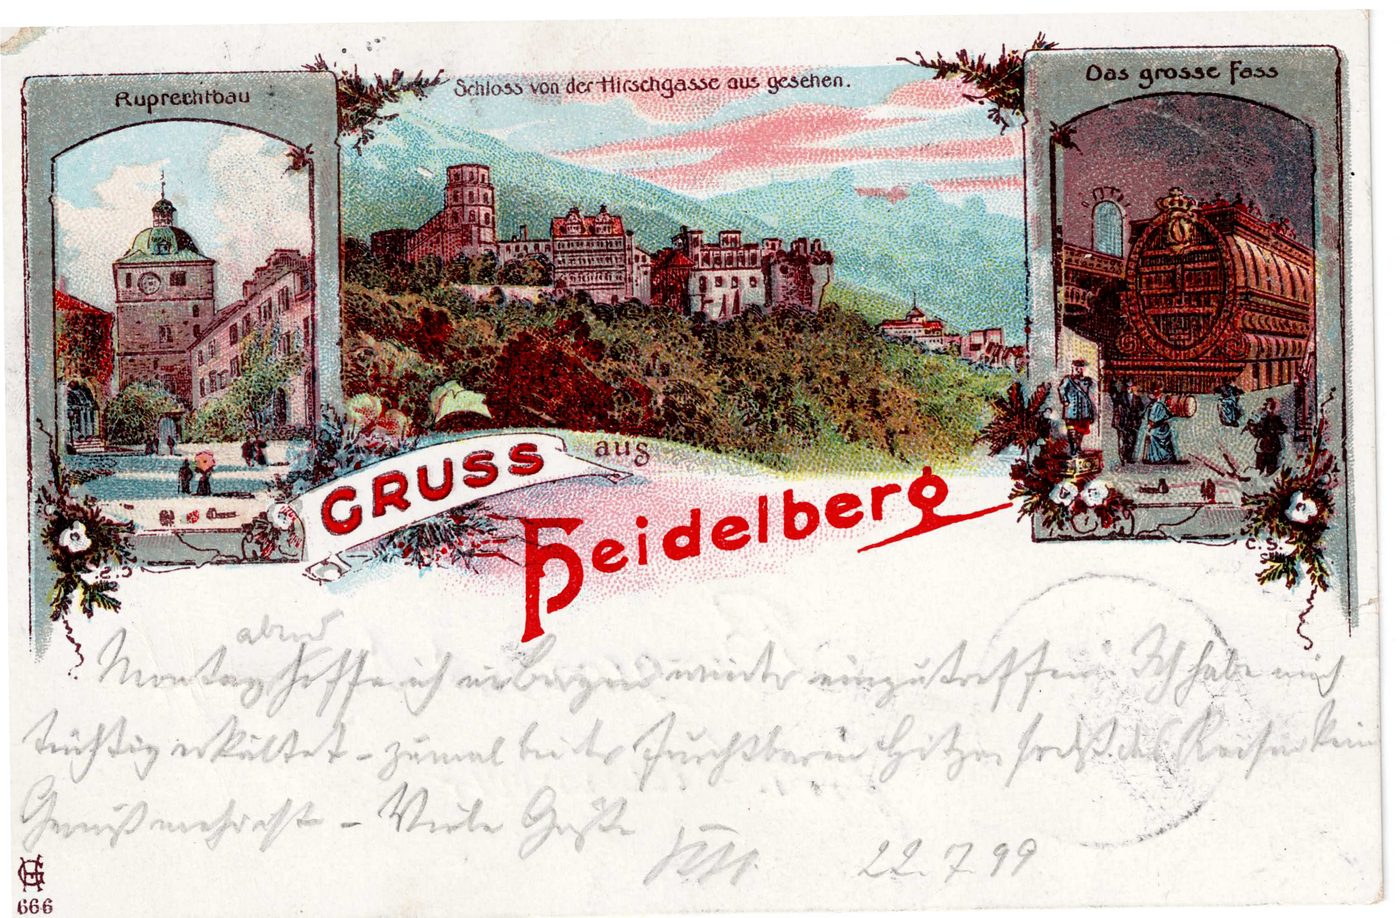 Ruprechtbau
Schloss von der Hirschgasse aus gesehen.
Das grosse Fass
GRUSS aus
Heidelberg
C.S.
abend
Montag hoffe ich wieder einzutreffen. Ich habe mich
tüchtig erkältet – zumal bei der furchtbaren Hitze, sodaß das Reisen kein
Genuß mehr ist – Viele Grüße
22.7.99
666